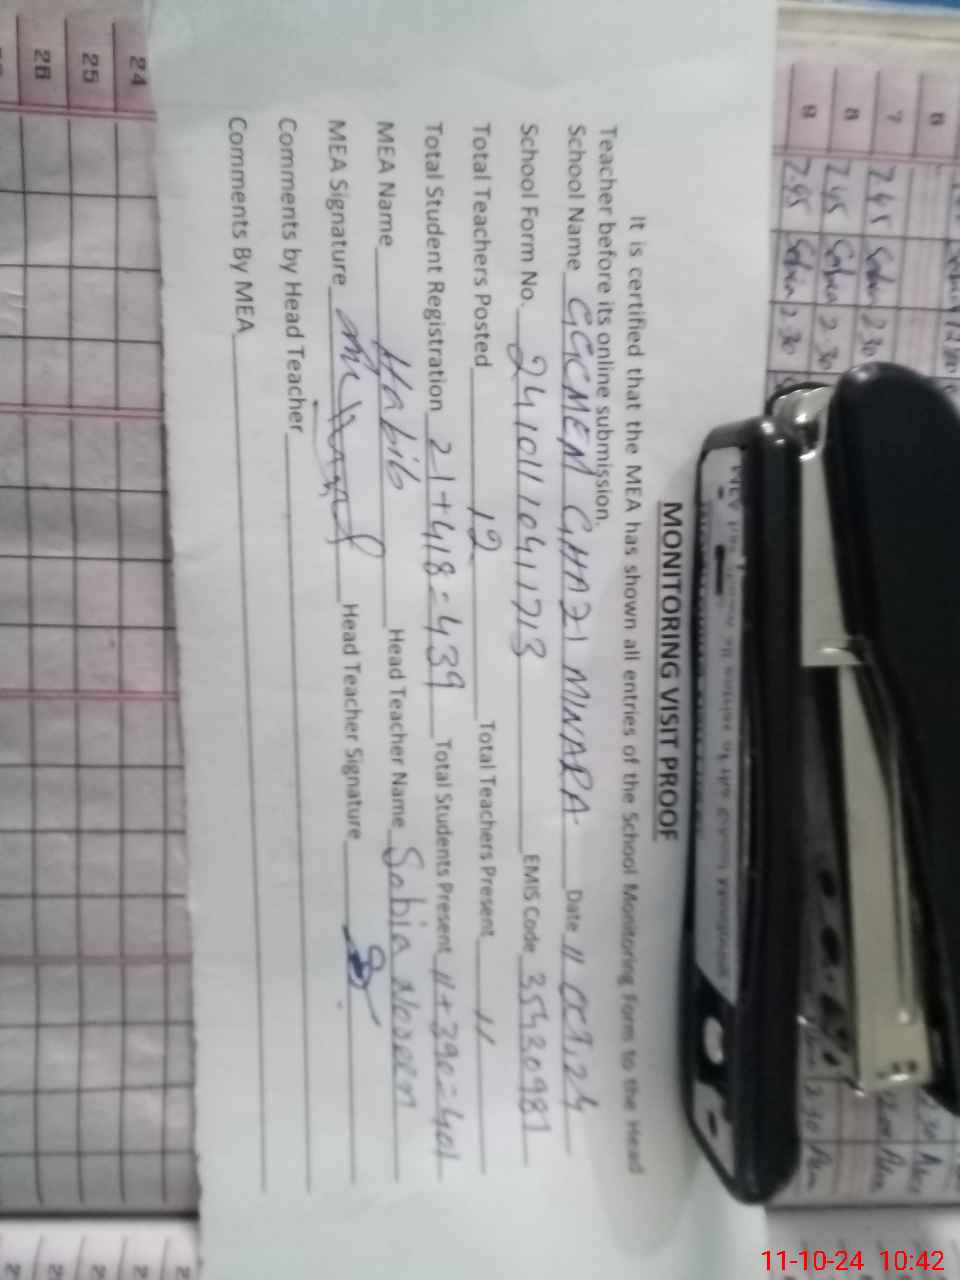 MONITORING VISIT PROOF
It is certified that the MEA has shown all entries of the School Monitoring Form to the Head
Teacher before its online submission.
School Name GGCMEM GHAZI MINARA Date 11 OCT, 24
School Form No. 2410111041713 EMIS Code 35430981
Total Teachers Posted 12 Total Teachers Present 11
Total Student Registration 21+418=439 Total Students Present 11+390=401
MEA Name Habib Head Teacher Name Sobia Noreen
MEA Signature Head Teacher Signature
Comments by Head Teacher
Comments By MEA
6
7 7 45 Sobia 2 30
8 7 45 Sobia 2 30
9 7 45 Sobia 2 30
24
25
26
11-10-24 10:42